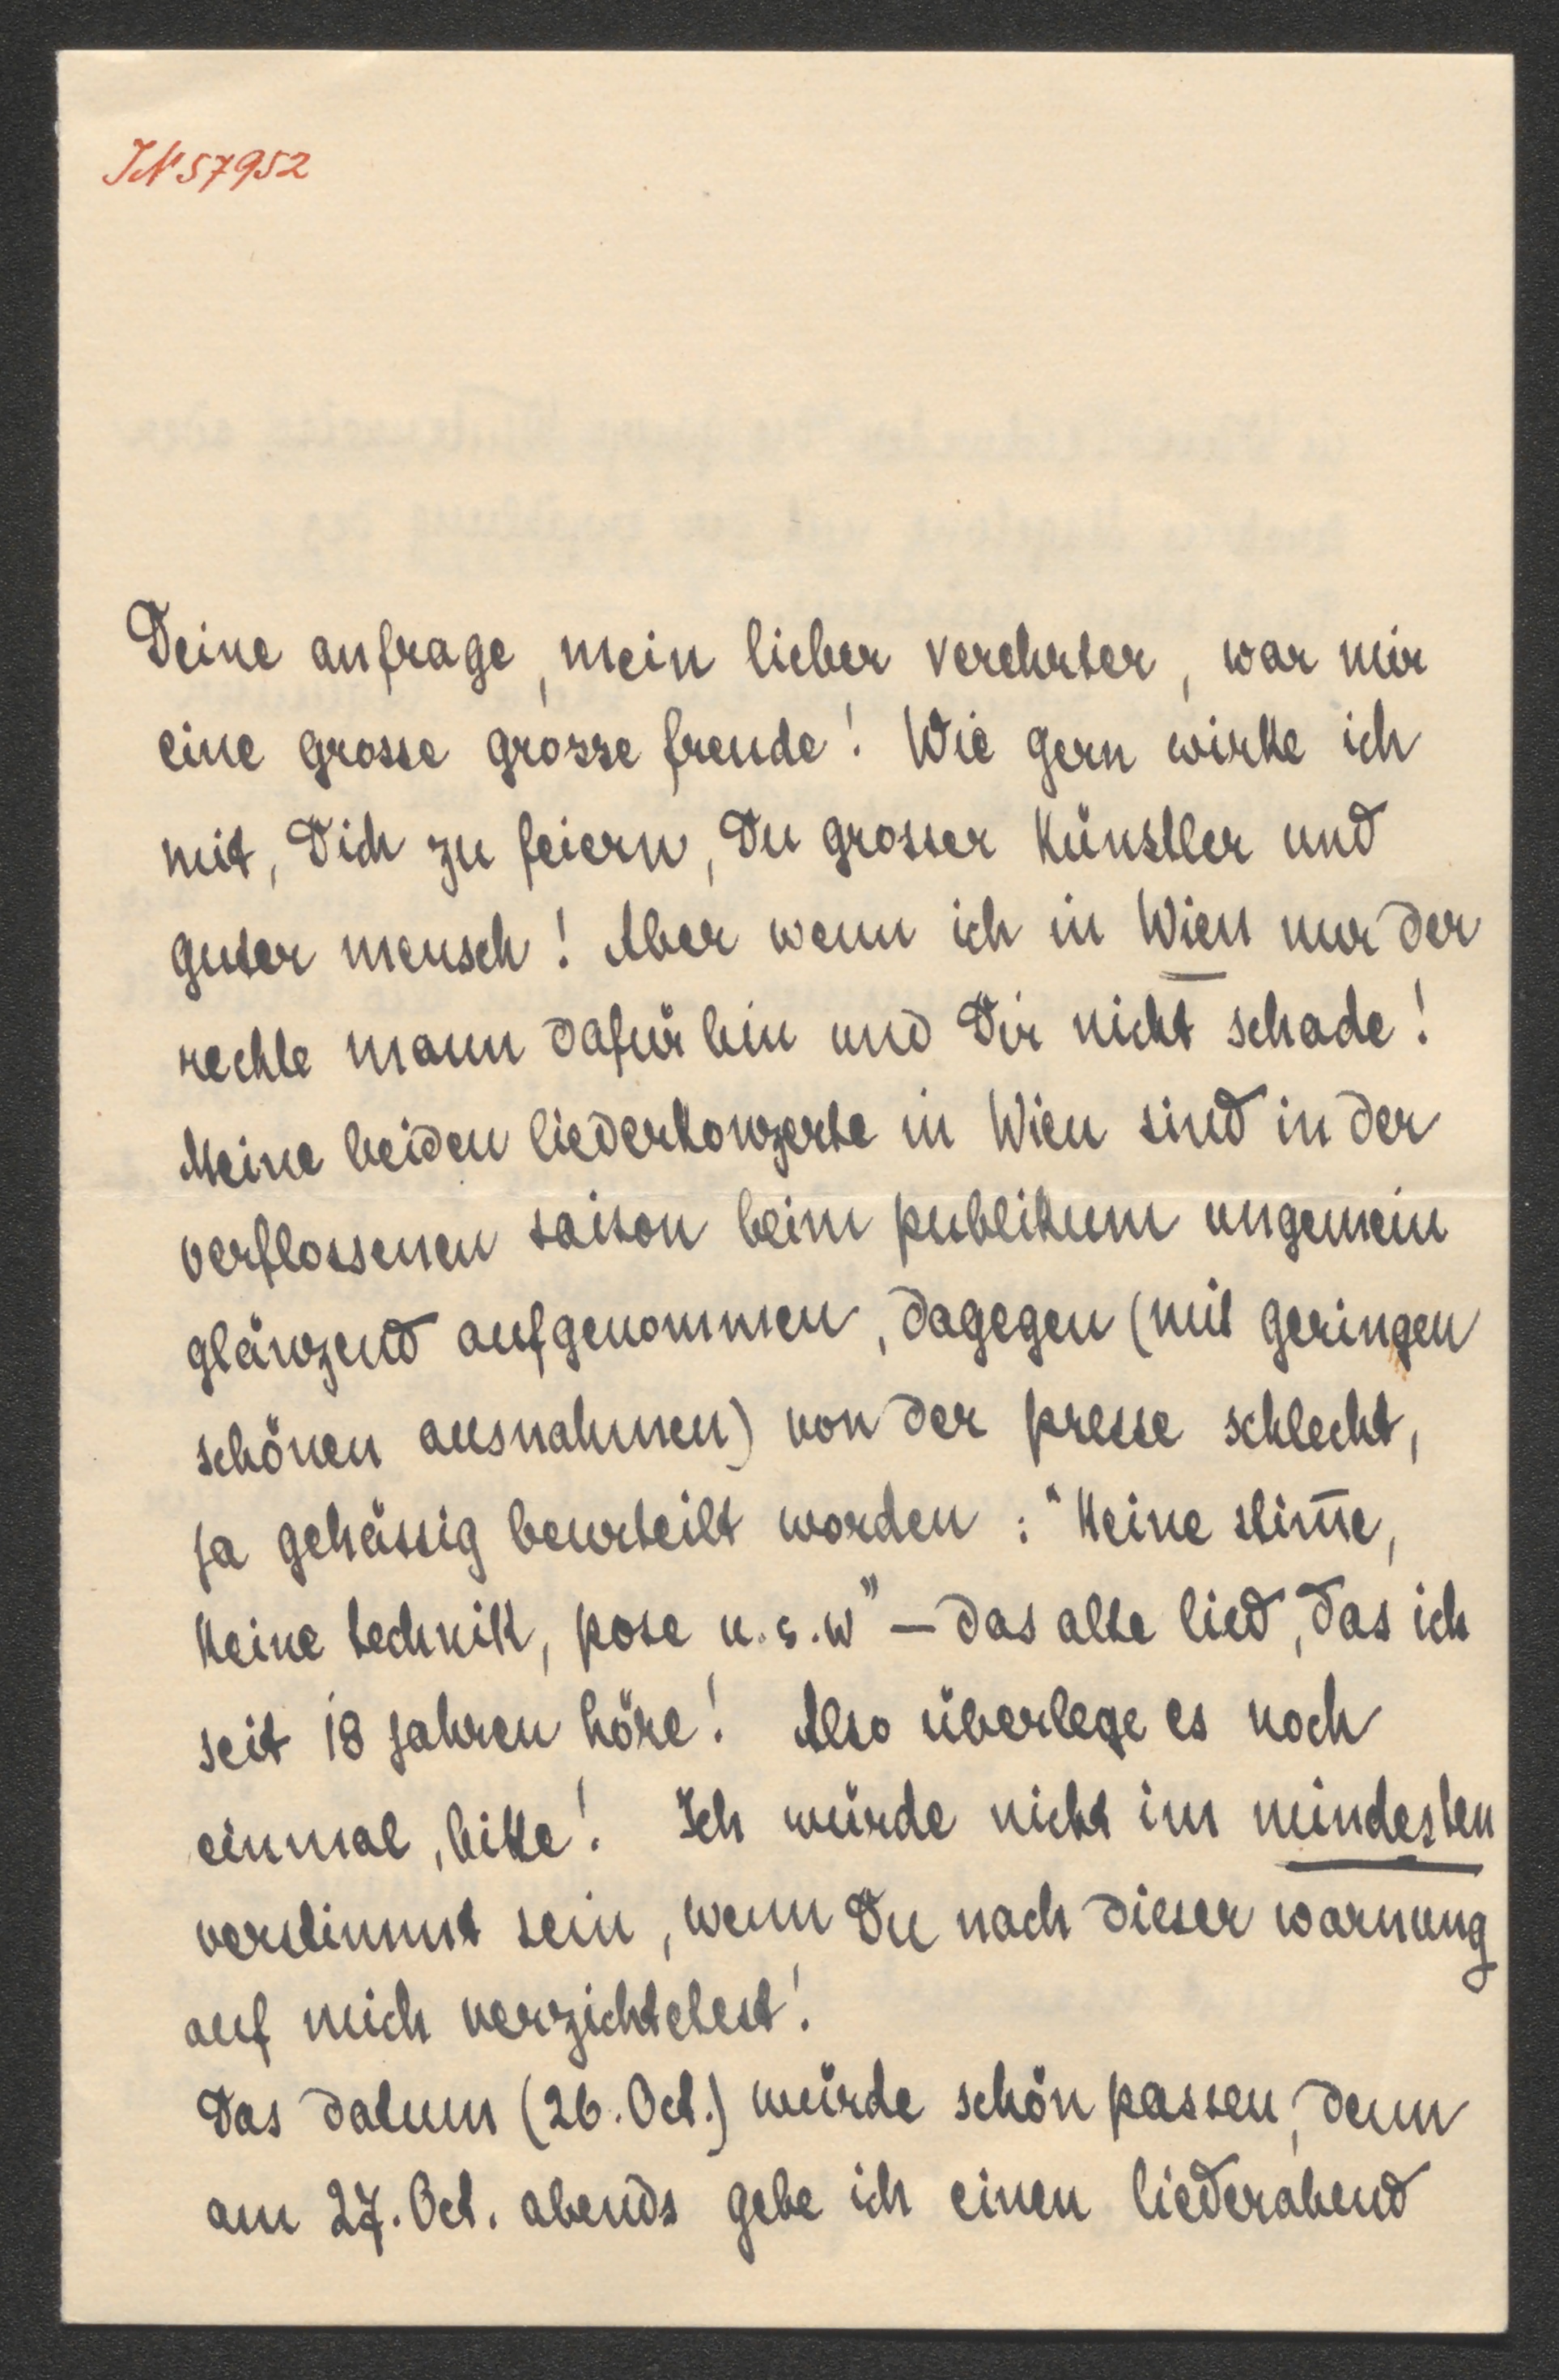 IN 57952
Deine anfrage, mein lieber verehrter, war mir
eine grosse grosse freude! Wie gern wirke ich
mit, Dich zu feiern, Du grosser künstler und
guter mensch! Aber wenn ich in Wien nur der
rechte mann dafür bin und Dir nicht schade!
Meine beiden liederkonzerte in Wien sind in der
verflossenen saison beim publikum ungemein
glänzend aufgenommen, dagegen (mit geringen
schönen ausnahmen) von der presse schlecht,
ja gehässig beurteilt worden: "Keine stim̅e,
keine technik, pose u.s.w" — das alte lied, das ich
seit 18 jahren höre! Also überlege es noch
einmal, bitte! Ich würde nicht im mindesten
verstimmt sein, wenn Du nach dieser warnung
auf mich verzichtetest!
Das datum (26. Oct.) würde schön passen, denn
am 27. Oct. abends gebe ich einen liederabend